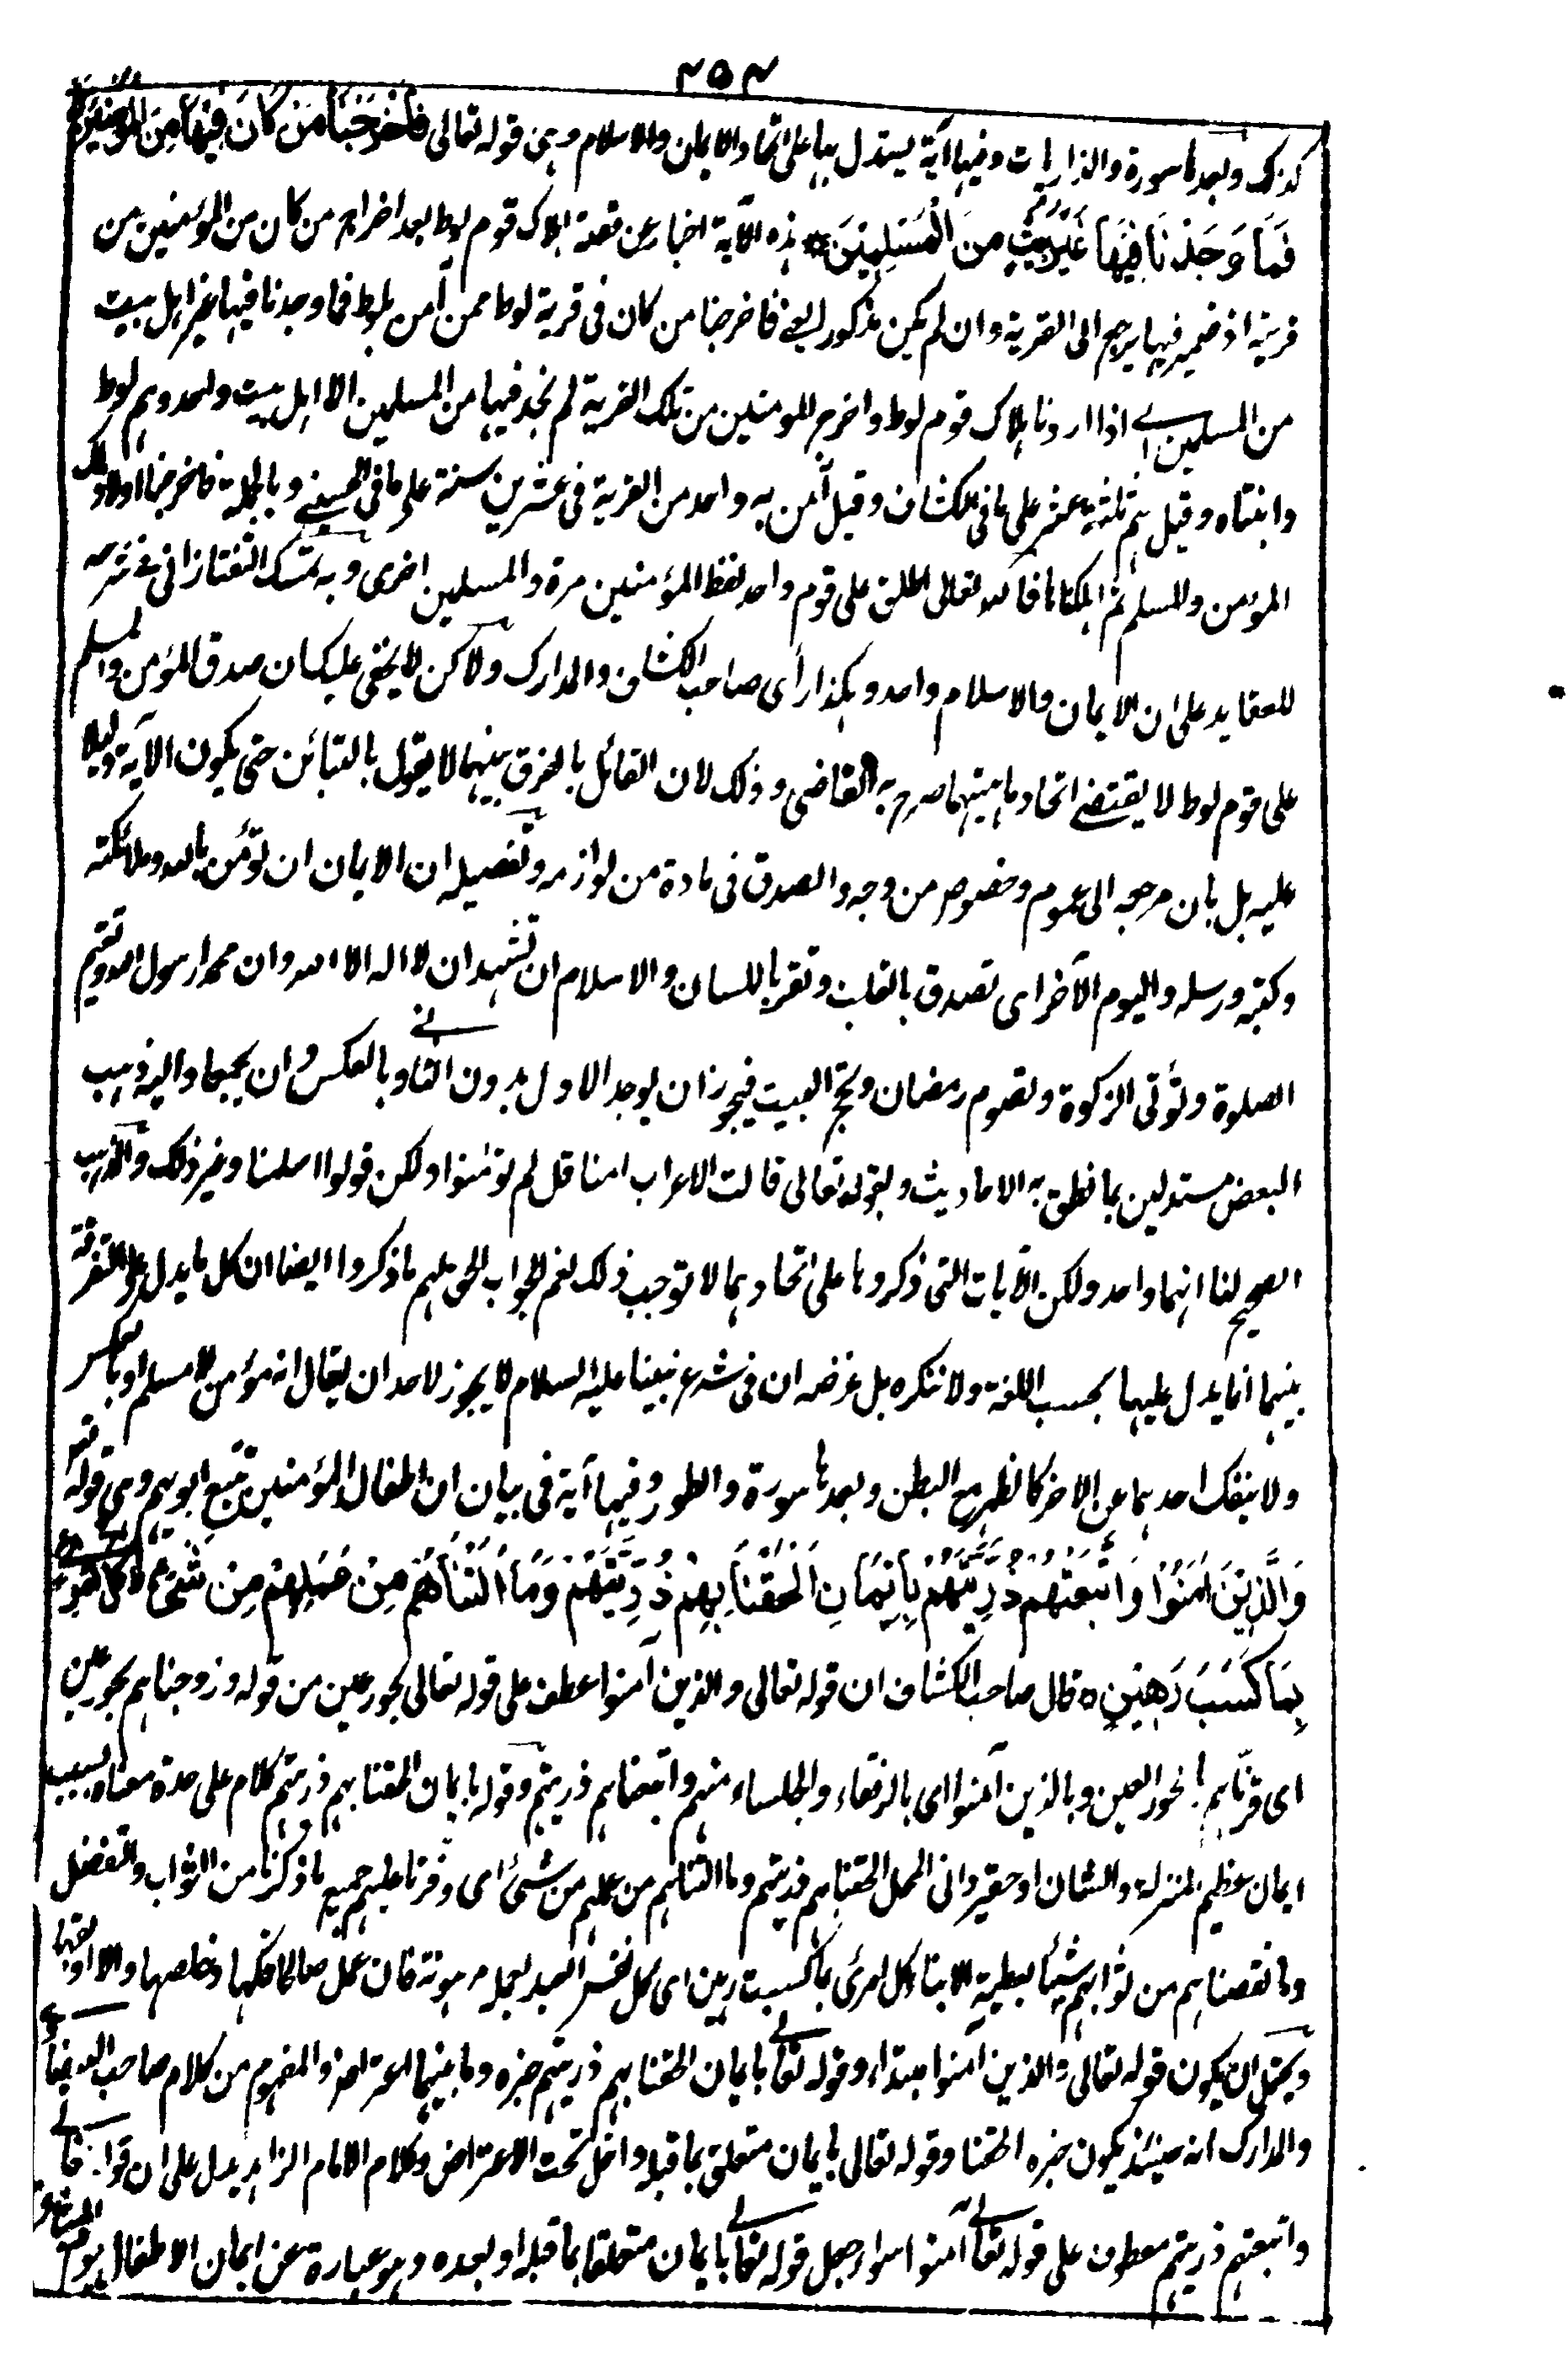 ٢٥٢
كذلك وبعدها سورة والذاريات وفيها آية يستدل بها على اتحاد الايمان والاسلام وهى قوله تعالى فَأَخْرَجْنَا مَنْ كَانَ فِيْهَا مِنَ الْمُؤْمِنِيْنَ
فَمَا وَجَدْنَا فِيْهَا غَيْرَ بَيْتٍ مِنَ الْمُسْلِمِيْنَ هذه الآية اخبار عن قصة اهلاك قوم لوط بعد اخراج من كان من المؤمنين من
قريته اذ ضمير فيها يرجع الى القرية وان لم يكن مذكورا يعنے فاخرجنا من كان فى قرية لوط ممن آمن بلوط فما وجدنا فيها غير اهل بيت
من المسلمين اے اذا اردنا هلاك قوم لوط واخرج المومنين من تلك القرية لم نجد فيها من المسلمين الا اهل بيت واحد وهم لوط
وابنتاه وقيل هم ثلثة عشر على ما فى الكشاف وقيل آمن به واحد من القرية فى عشرين سنة على ما فى الحسينے وبالجملة فاخرجنا اولا
المؤمن والمسلم ثم اهلكناها فالله تعالى اطلق على قوم واحد لفظ المؤمنين مرة والمسلمين اخرى وبه تمسك التفتازانى فے شرحه
للعقايد على ان الايمان والاسلام واحد وهكذا رأى صاحب الكشاف والمدارك ولاكن لا يخفى عليك ان صدق المؤمن والمسلم
على قوم لوط لا يقتضے اتحاد ماهيتهما صرح به القاضى وذلك لان القائل بالفرق بينهما لا يقول بالتبائن حتى يكون الآية دليلا
عليه بل بان مرجعه الى عموم وخصوص من وجه والصدق فى مادة من لوازمه وتفصيله ان الايمان ان تؤمن بالله وملائكته
وكتبه ورسله واليوم الآخر اى تصدق بالقلب وتقر باللسان والاسلام ان تشهد ان لا اله الا الله وان محمدا رسول الله وتقيم
الصلوة وتؤتى الزكوة وتصوم رمضان وتحج البيت فيجوز ان يوجد الاول بدون الثانے وبالعكس وان يجمعا واليه ذهب
البعض مستدلين بما نطق به الاحاديث وبقوله تعالى قالت الاعراب امنا قل لم تؤمنوا ولكن قولوا اسلمنا وغير ذلك والمذهب
الصحيح لنا انهما واحد ولكن الآيات التى ذكروها على اتحادهما لا توجب ذلك نعم الجواب الحق لهم ما ذكروا ايضا ان كل ما يدل على التفرقة
بينهما انما يدل عليها بحسب اللغة ولا ننكره بل غرضه ان فى شرع نبينا عليه السلام لا يجوز لاحد ان يقال انه مؤمن لا مسلم او بالعكس
ولا ينفك احدهما عن الاخر كالظهر مع البطن وبعدها سورة والطور وفيها آية فى بيان ان اطفال المؤمنين تتبع ابويهم وهى قوله تعالى
وَالَّذِيْنَ اٰمَنُوْا وَاتَّبَعَتْهُمْ ذُرِّيَّتُهُمْ بِاِيْمَانٍ اَلْحَقْنَا بِهِمْ ذُرِّيَّتَهُمْ وَمَا اَلَتْنَاهُمْ مِنْ عَمَلِهِمْ مِنْ شَيْءٍ كُلُّ امْرِئٍ
بِمَا كَسَبَ رَهِيْنٌ ه قال صاحب الكشاف ان قوله تعالى والذين آمنوا عطف على قوله تعالى بحور عين من قوله وزوجناهم بحور عين
اى قرناهم بالحور العين وبالذين آمنوا اى بالرفقاء والجلساء منهم واتبعناهم ذريتهم وقوله بايمان الحقنا بهم ذريتهم كلام على حدة معناه بسبب
ايمان عظيم المنزلة والشان او حقير دانى المحل الحقنا بهم ذريتهم وما التناهم من عملهم من شئ اى وفرنا عليهم جميع ما ذكرنا من الثواب والتفضل
وما نقصناهم من ثوابهم شيئا بعطية الابناء كل امرئ بما كسبت رهين اى كل نفس العبد بعمله مرهونة فان عمل صالحا فكها وخلصها والا اوبقها
ويحتمل ان يكون قوله تعالى والذين آمنوا مبتداء وقوله تعالے بايمان الحقنا بهم ذريتهم خبره وما بينهما اعتراض والمفهوم من كلام صاحب البيضاوے
والمدارك انه حينئذ يكون خبره الحقنا وقوله تعالى بايمان متعلق بما قبله داخل تحت الاعتراض وكلام الامام الزاهد يدل على ان قوله تعالے
واتبعتهم ذريتهم معطوف على قوله تعالے آمنوا سواء جعل قوله تعالے بايمان متعلقا بما قبله او بعده وهو عبارة عن ايمان الاطفال يوم الميثاق